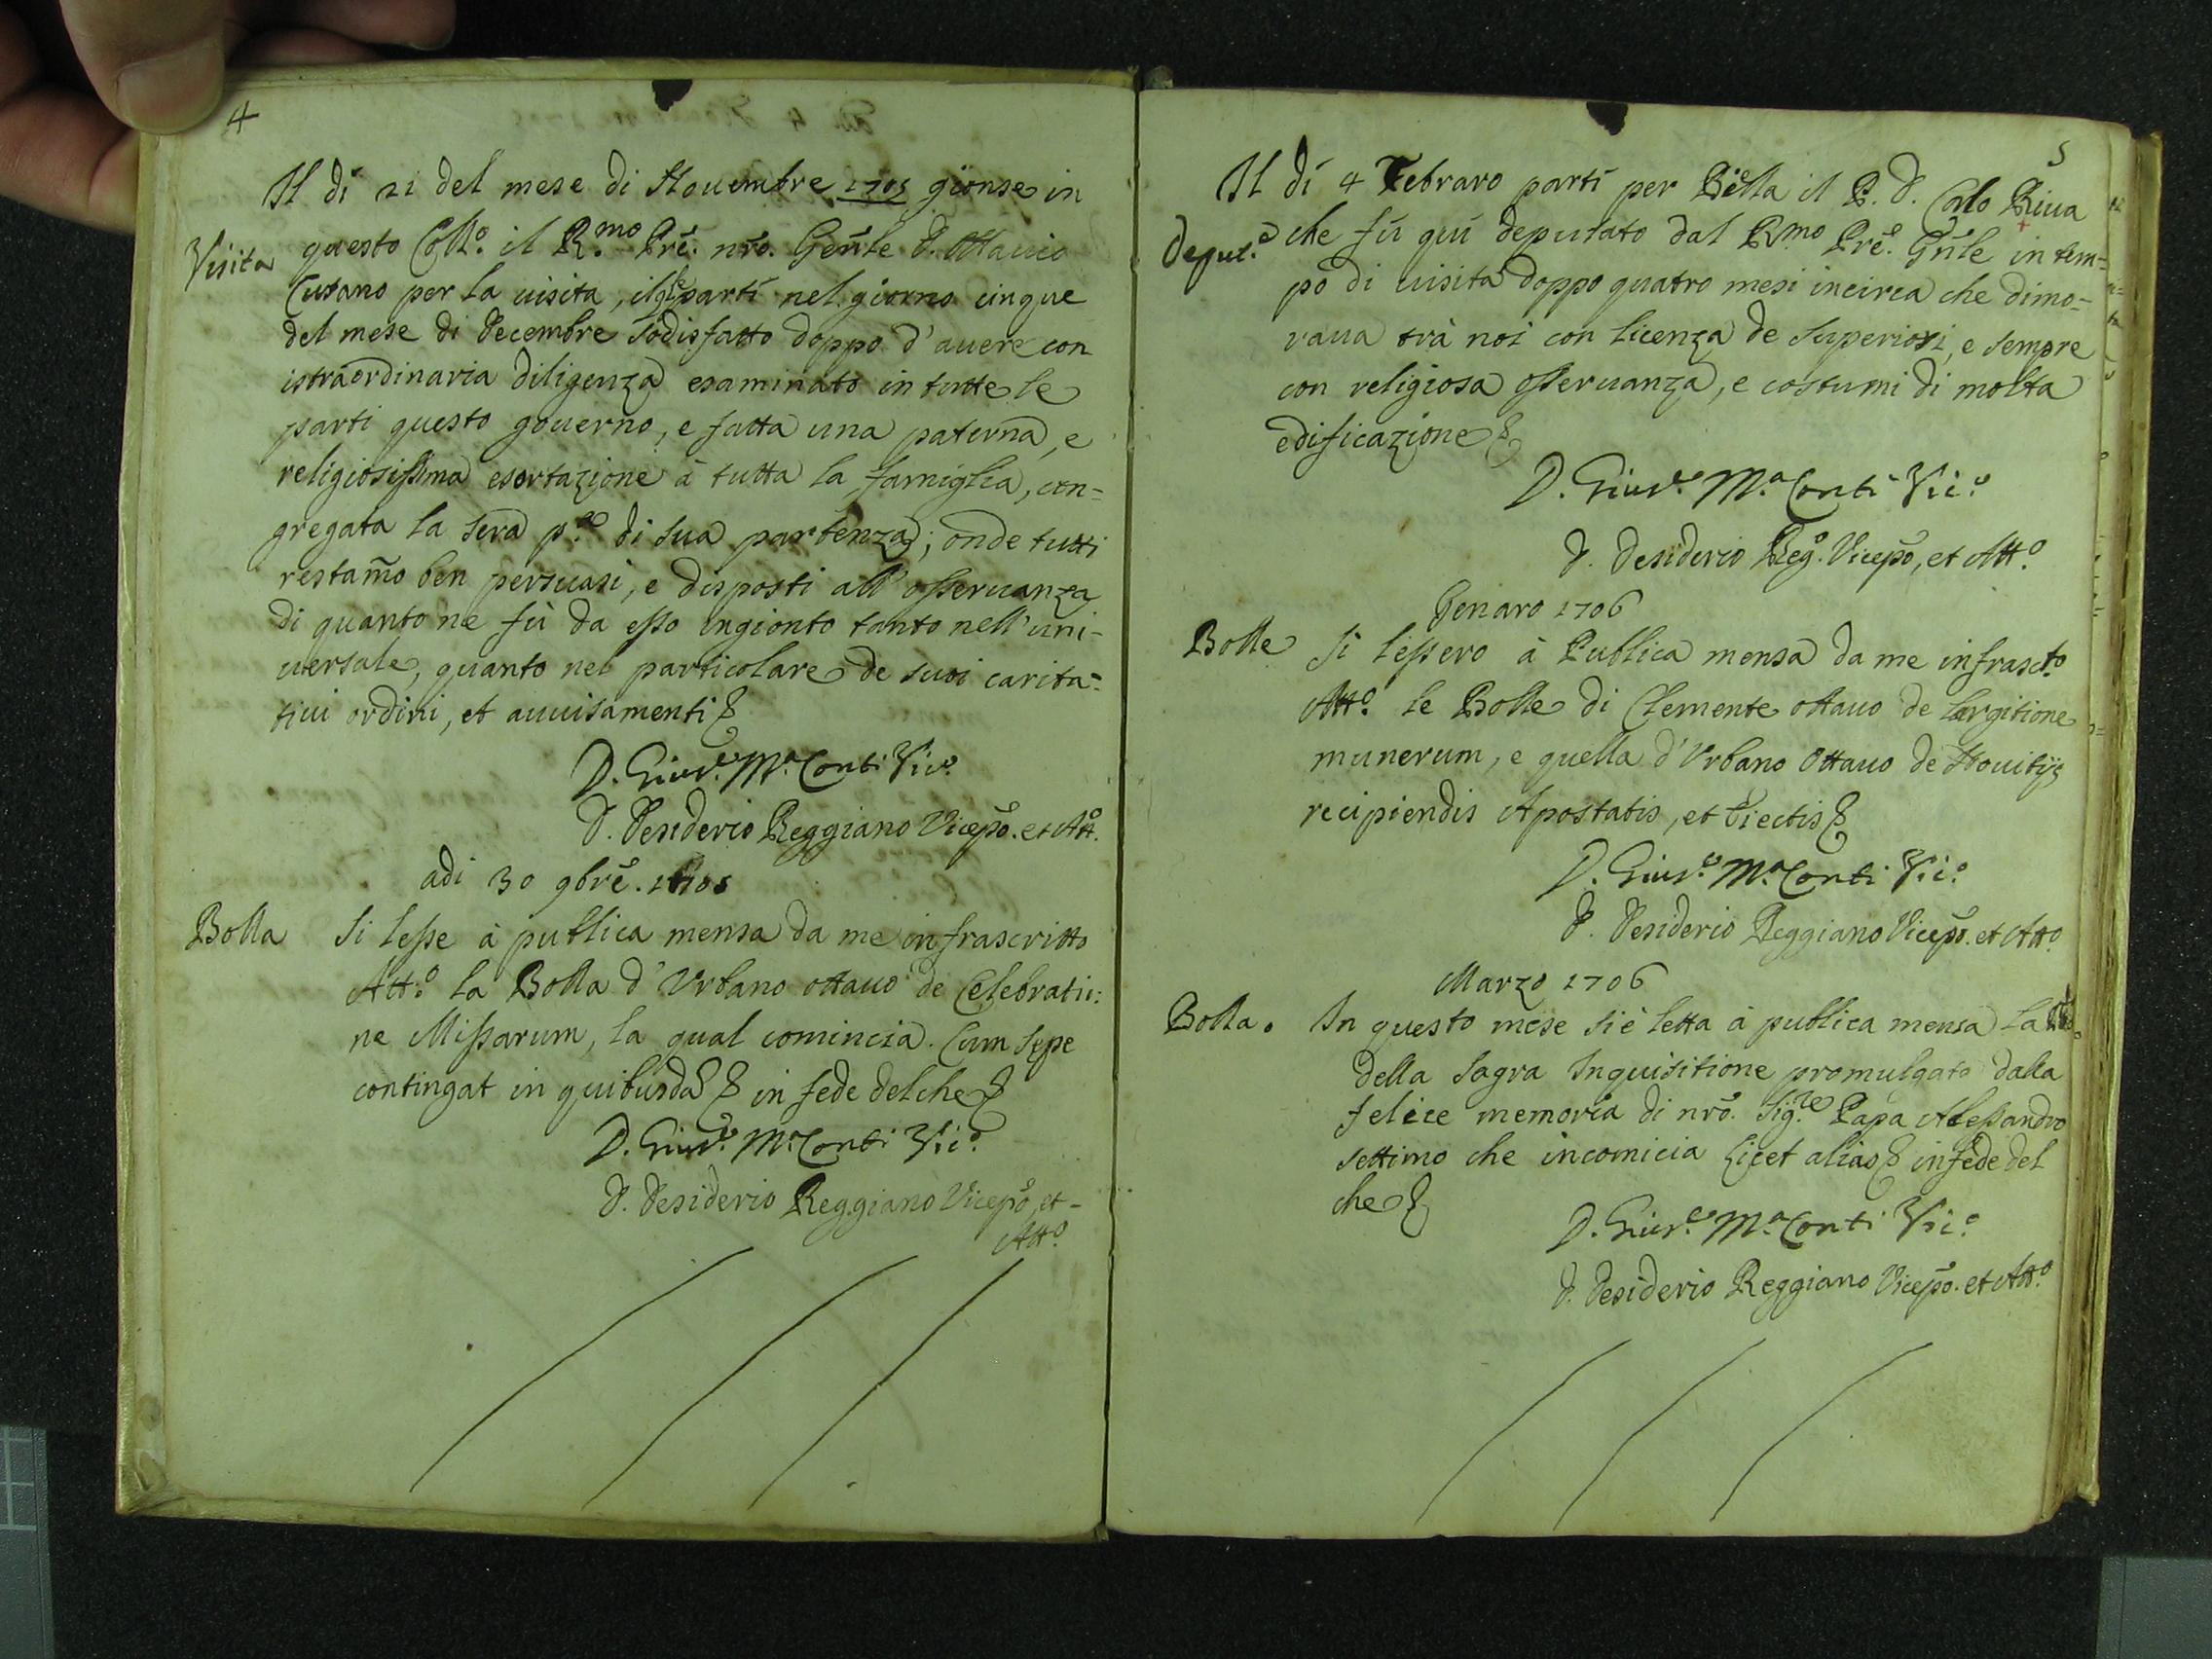 4
Il dì 21 del mese di Nouembre 1705 gionse in
Visita questo Coll.o il R.mo Prē. nrō. Gen̄le D. Ottauio
Cusano per la uisita, il qle partì nel giorno cinque
del mese di Decembre sodisfatto doppo d'auere con
istraordinaria diligenza esaminato in tutte le
parti questo gouerno, e fatta una paterna, e
religiosissima esortazione à tutta la famiglia, con=
gregata la sera p.a di sua partenza; onde tutti
restam̄o ben persuasi, e disposti all'osseruanza
di quanto ne fù da esso ingionto tanto nell'uni-
uersale, quanto nel particolare de suoi carita=
tiui ordini, et auuisamenti
D. Gius.e M.a Conti Vic.o
D. Desiderio Reggiano Vicepō. et Att.o
adi 30 9brē. 1705
Bolla Si lesse à publica mensa da me infrascritto
Att.o la Bolla d'Vrbano ottauo de Celebratio:
ne Missarum, la qual comincia. Cum sępe
contingat in quibusdā in fede del che
D. Gius.e M.a Conti Vic.o
D. Desiderio Reggiano Vicepō, et -
Att.o
5
Il dì 4 Febraro partì per Biella il P. D. Carlo Riua
Deput.o che fù quì deputato dal R.mo Prē. Gn̄le in tem=
po di uisita doppo quatro mesi incirca che dimo-
raua trà noi con licenza de Superiori, e sempre
con religiosa osseruanza, e costumi di molta
edificazione
D. Gius.e M.a Conti Vic.o
D. Desiderio Reg.o Vicepō, et Att.o
Genaro 1706
Bolle Si lessero à Publica mensa da me infrascto.
Att.o le Bolle di Clemente ottauo de largitione
munerum, e quella d'Vrbano Ottauo de Nouitijs
recipiendis Apostatis, et Eiectis
D. Gius.e M.a Conti Vic.o
D. Desiderio Reggiano Vicepō. et Att.o
Marzo 1706
Bolla. In questo mese si è letta à publica mensa la
della Sagra Inquisitione promulgata dalla
felice memoria di nrō. Sig.re Papa Alessandro
settimo che incomicia Licet alias in fede del
che
D. Gius.e M.a Conti Vic.o
D. Desiderio Reggiano Vicepō. et Att.o